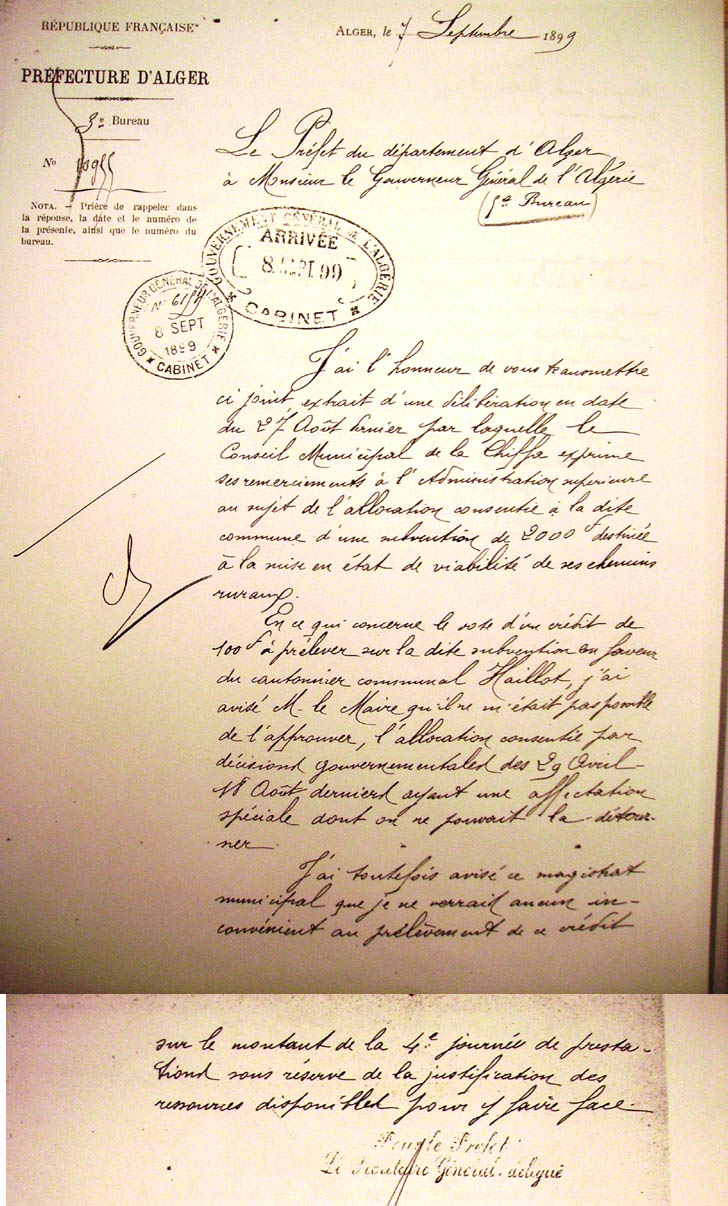 RÉPUBLIQUE FRANÇAISE
PRÉFECTURE D'ALGER
3e Bureau
No
NOTA. — Prière de rappeler dans
la réponse, la date et le numéro de
la présente, ainsi que le numéro du
bureau.
ALGER, le 7 Septembre 1899
Le Préfet du département d'Alger
à Monsieur le Gouverneur Général de l'Algérie
Bureau)
GOUVERNEMENT GÉNÉRAL DE L'ALGÉRIE
ARRIVÉE
8 SEPT 99
CABINET
GOUVERNEUR GÉNÉRAL DE L'ALGÉRIE
No
8 SEPT
1899
CABINET
J'ai l'honneur de vous transmettre
ci joint extrait d'une délibération en date
du 27 Août dernier par laquelle le
Conseil Municipal de la Chiffa exprime
ses remerciements à l'Administration supérieure
au sujet de l'allocation consentie à la dite
commune d'une subvention de 2000 f destinée
à la mise en état de viabilité de ses chemins
ruraux.
En ce qui concerne le vote d'un crédit de
100 f à prélever sur la dite subvention en faveur
du cantonnier communal Haillot, j'ai
avisé M. le Maire qu'il ne m'était pas possible
de l'approuver, l'allocation consentie par
décisions gouvernementales des 29 Avril
Août derniers ayant une affectation
spéciale dont on ne pouvait la détour-
ner.
J'ai toutefois avisé ce magistrat
municipal que je ne verrais aucun in-
convénient au prélèvement de ce crédit
sur le montant de la 4e journée de presta-
tions sous réserve de la justification des
ressources disponibles pour y faire face.
Pour le Préfet
Le Secrétaire Général délégué